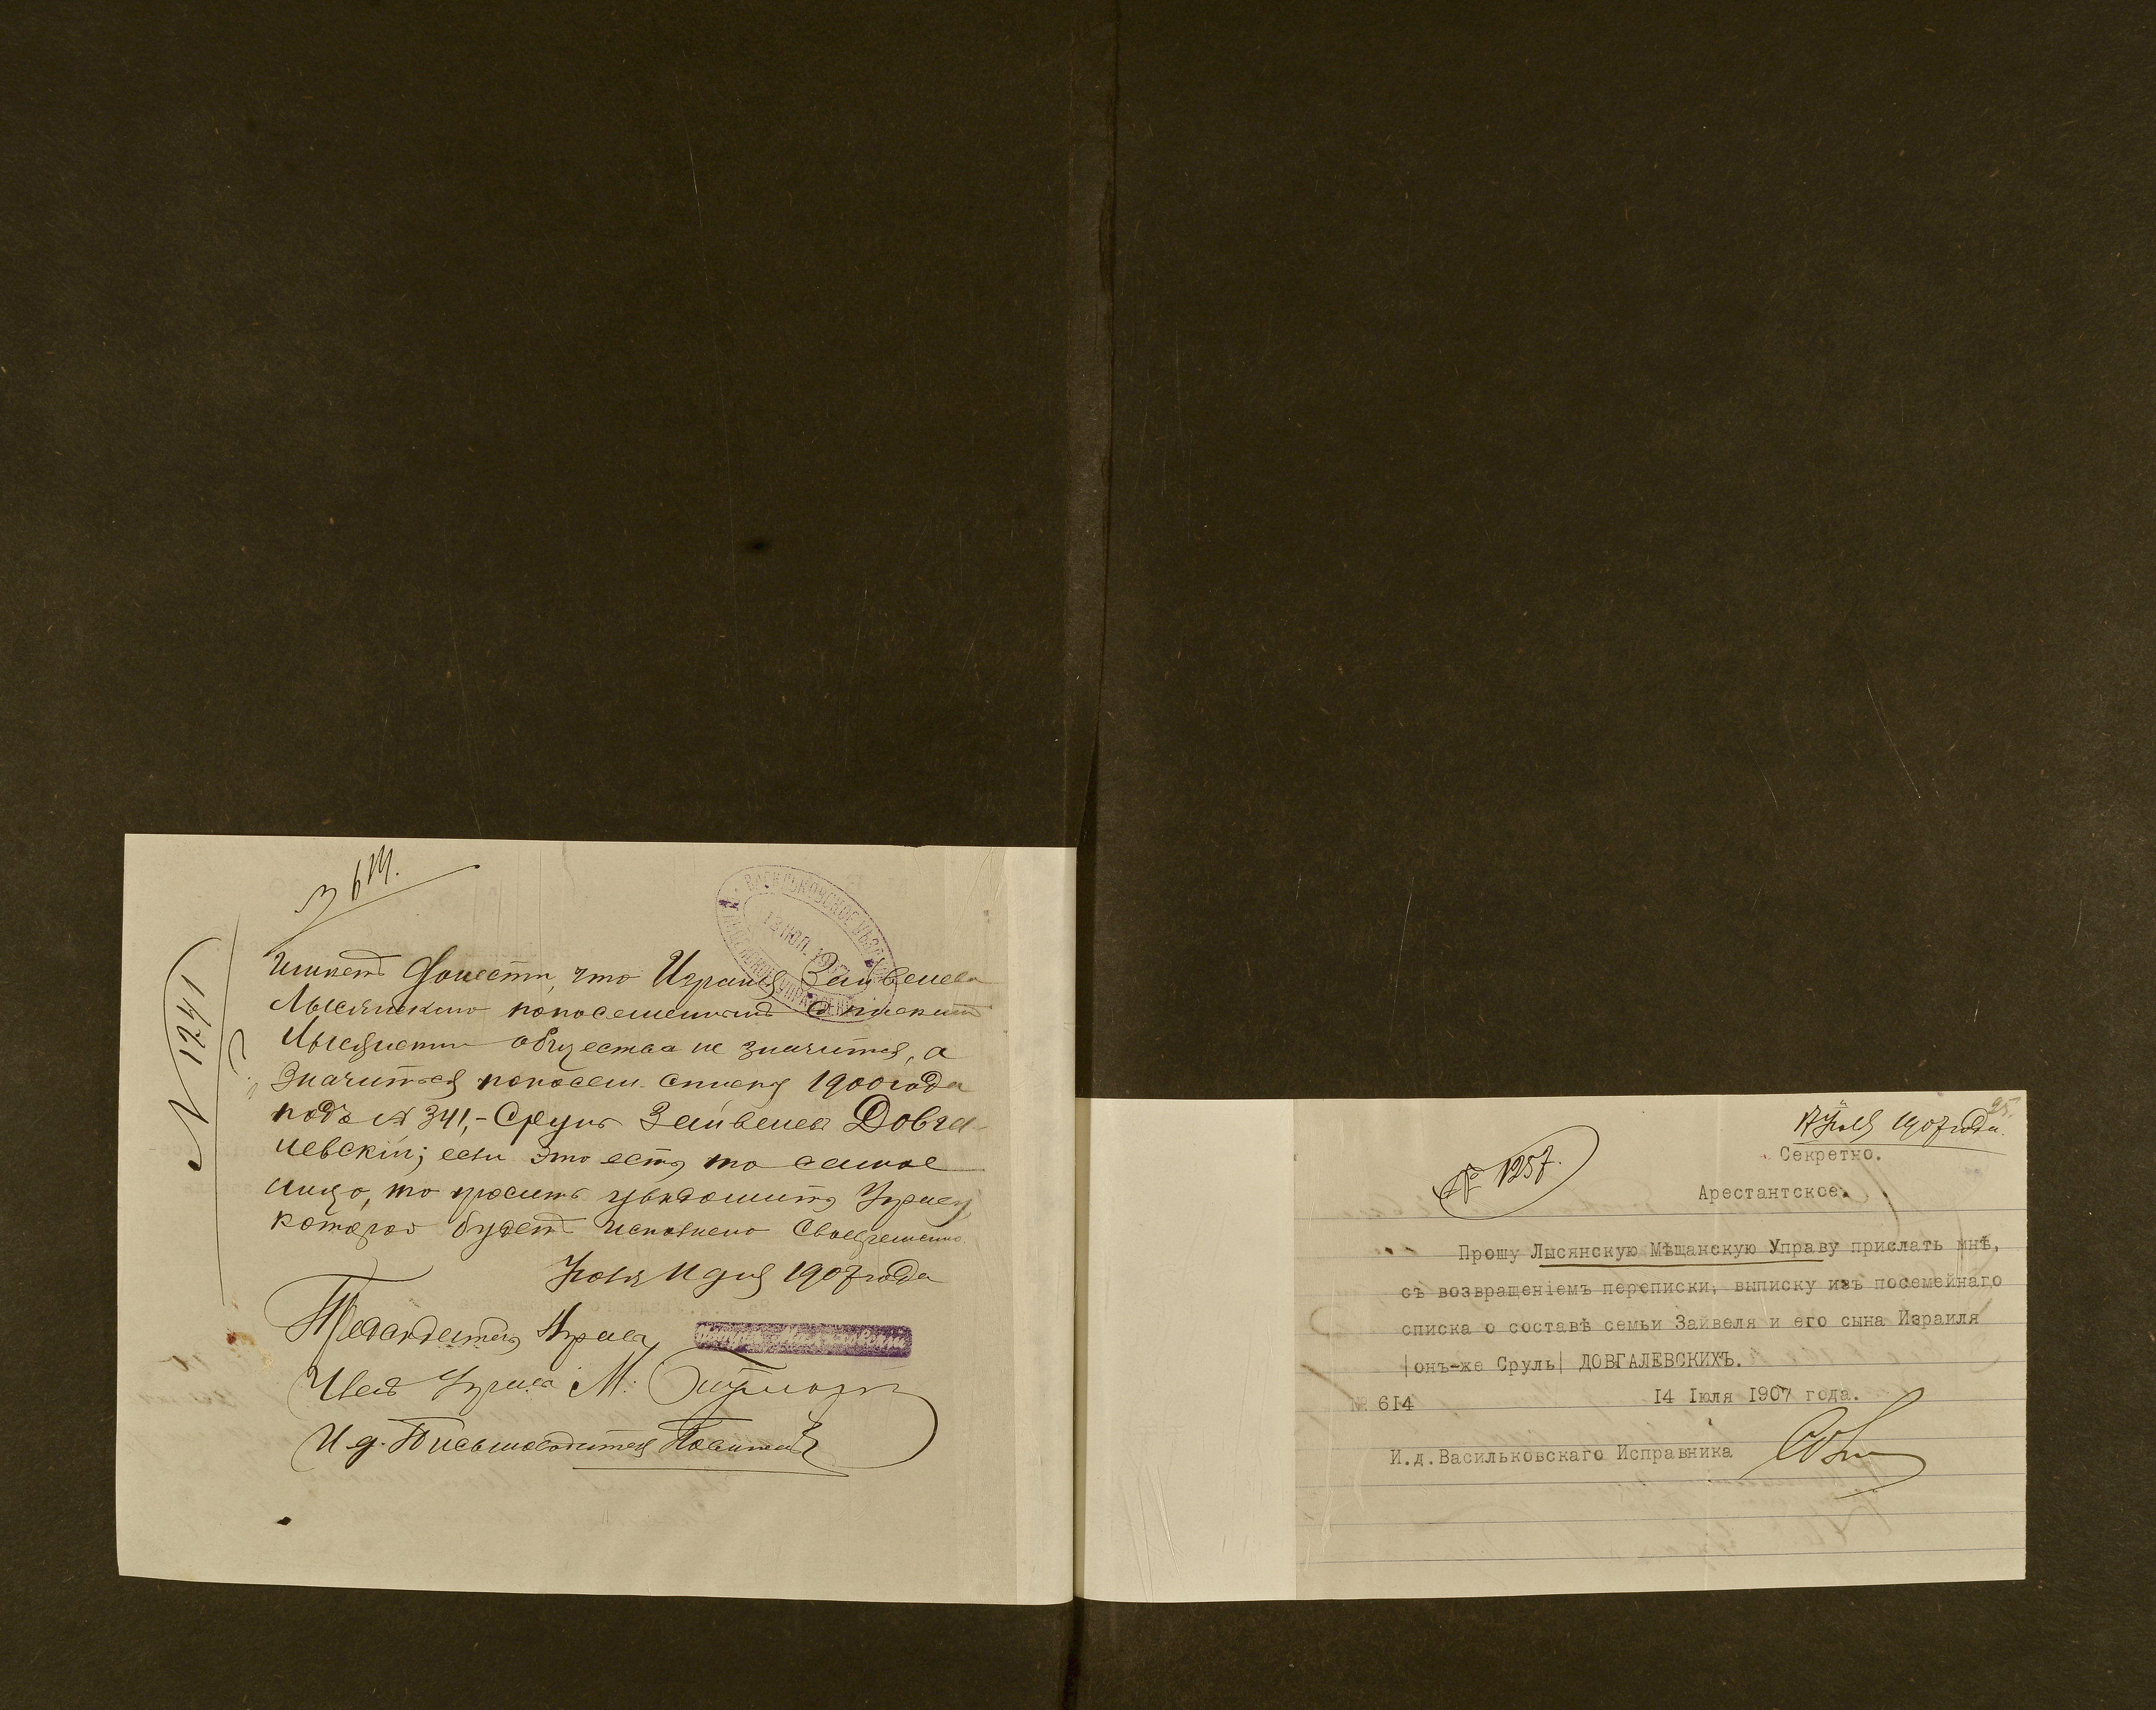 N 1241
ВАСИЛЬКОВСКОЕ УѢЗДНОЕ
ПОЛИЦЕЙСКОЕ УПРАВЛЕНІЕ
13 ІЮЛ. 1907
имѣетъ донести, что Израиля Зайвелева
по посемейнымъ спискамъ
общества не значится, а
значится по посем. списку 1900 года
подъ № 341,- Сруль Зайвелев Довга-
левскій; если это есть то самое
лицо, то просить увѣдомить Управу,
которою будетъ исполнено своевременно.
Іюля 11 дня 1907 года
Предсѣдатель Управы
Член Управы М.
И.д. Письмоводителя
25.
17 Іюля 1907 года.
№ 1257.
Секретно.
Арестантское.
Прошу Лысянскую Мѣщанскую Управу прислать мнѣ,
съ возвращеніемъ переписки, выписку изъ посемейнаго
списка о составѣ семьи Зайвеля и его сына Израиля
|онъ-же Сруль| ДОВГАЛЕВСКИХЪ.
№ 614
14 Іюля 1907 года.
И.д.Васильковскаго Исправника